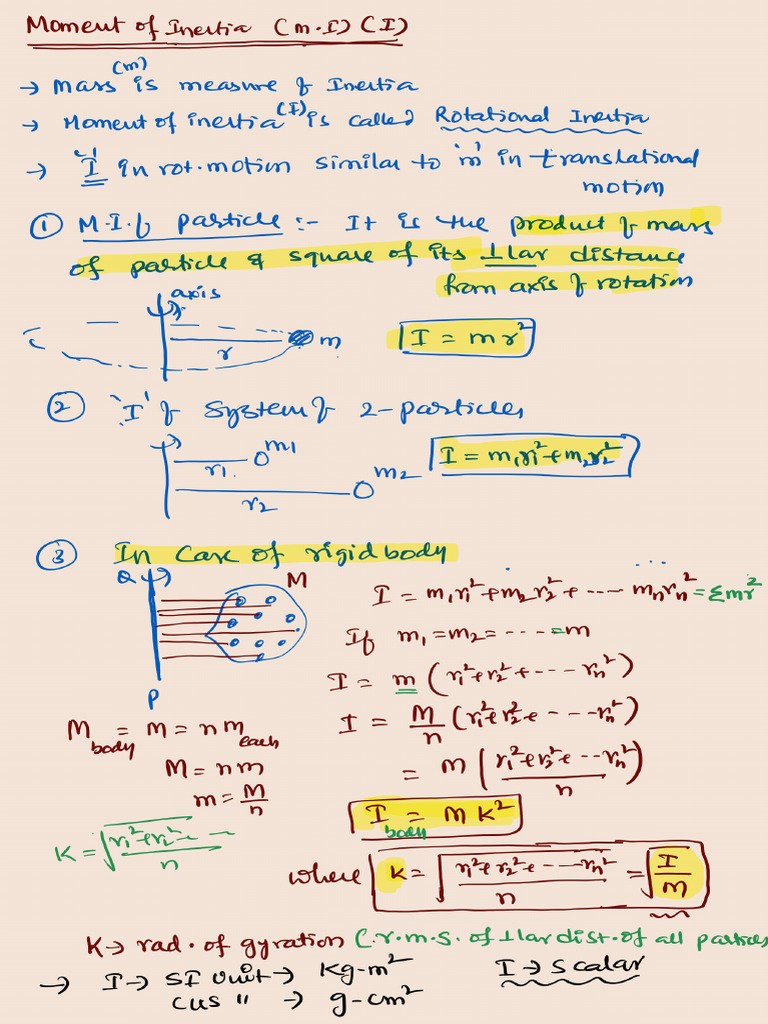 Moment of Inertia (M.I) (I)
→ Mass (m) is measure of Inertia
→ Moment of inertia (I) is called Rotational Inertia
→ 'I' in rot. motion similar to 'm' in translational
motion
① M.I. of particle :- It is the product of mass
of particle & square of its ⊥lar distance
from axis of rotation
axis
r
m
I = mr²
② 'I' of System of 2-particles
r₁
m₁
r₂
m₂
I = m₁r₁² + m₂r₂²
③ In Case of rigid body
Q
M
P
I = m₁r₁² + m₂r₂² + ---- mₙrₙ² = Σmr²
If m₁ = m₂ = ---- = m
I = m (r₁² + r₂² + ---- rₙ²)
I = M/n (r₁² + r₂² + ---- rₙ²)
= M ( (r₁² + r₂² + -- rₙ²) / n )
M body = M = n m each
M = nm
m = M/n
I body = M K²
K = √( (r₁² + r₂² + -- ) / n )
where K = √( (r₁² + r₂² + ---- rₙ²) / n ) = √( I / M )
K → rad. of gyration (r.m.s. of ⊥lar dist. of all particles
→ I → SI Unit → Kg-m²
CGS " → g-cm²
I → Scalar